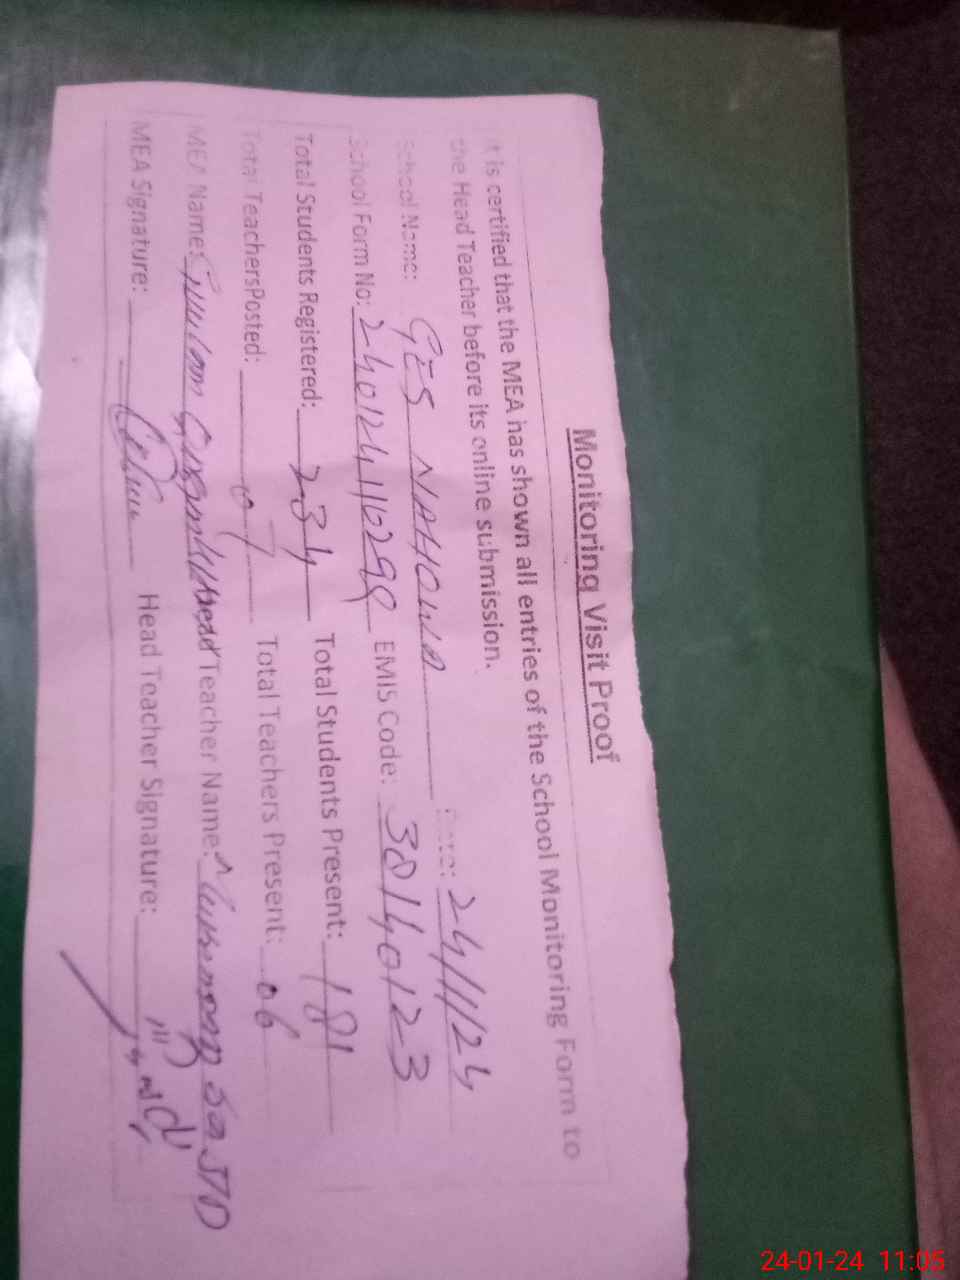 Monitoring Visit Proof
It is certified that the MEA has shown all entries of the School Monitoring Form to
the Head Teacher before its online submission.
School Name: GES NAHOWA Date: 24/1/24
School Form No: 240124110299 EMIS Code: 38140123
Total Students Registered: 234 Total Students Present: 181
Total TeachersPosted: 07 Total Teachers Present: 06
MEA Name: Head Teacher Name:
MEA Signature: Head Teacher Signature:
24-01-24 11:05